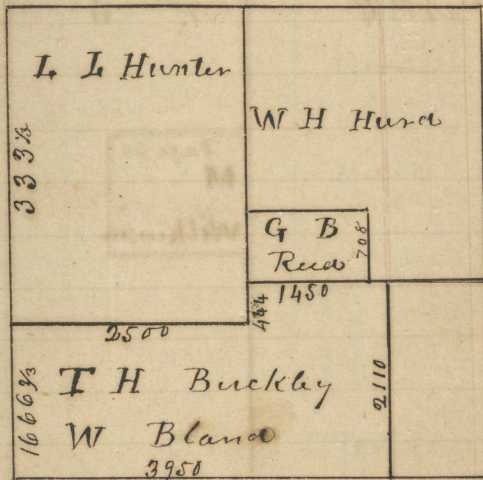 L L Hunter
W H Hurd
333⅓
G B
Reed
708
1450
444
2500
1666⅔
T H Buckley
W Bland
2110
3950